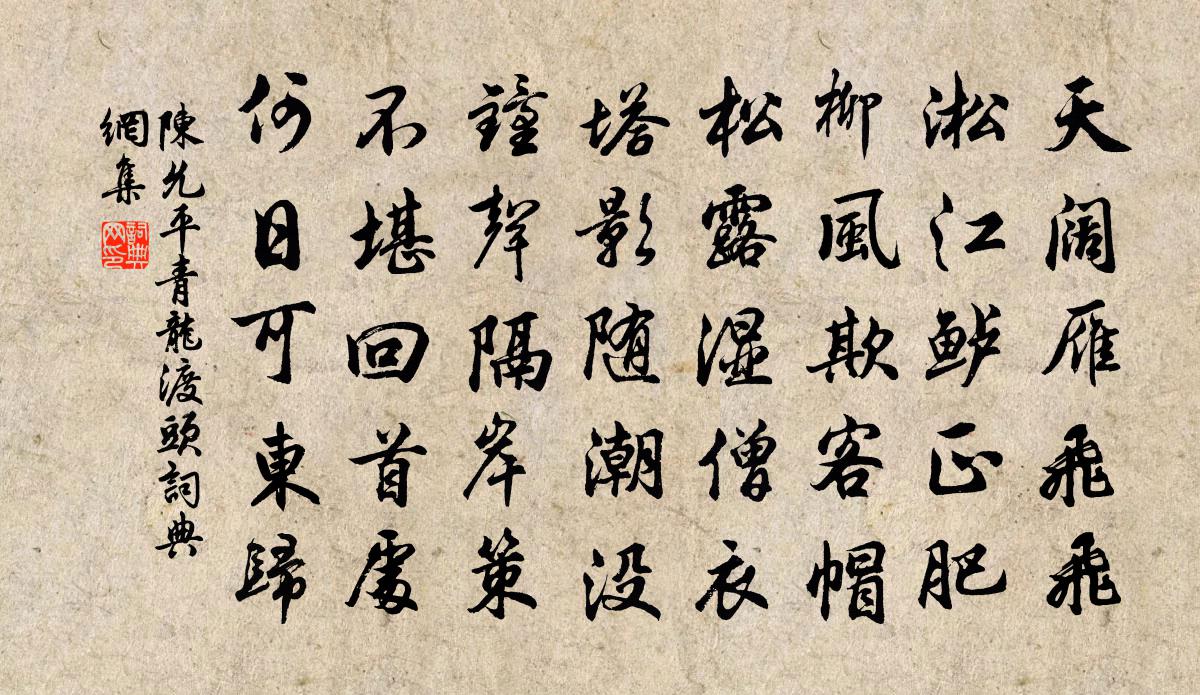 天阔雁飛飛
淞江鲈正肥
柳風欺客帽
松露湿僧衣
塔影随潮没
鐘聲隔岸策
不堪回首處
何日可東歸
陳允平青龍渡頭詞典
網集
詞典
网印